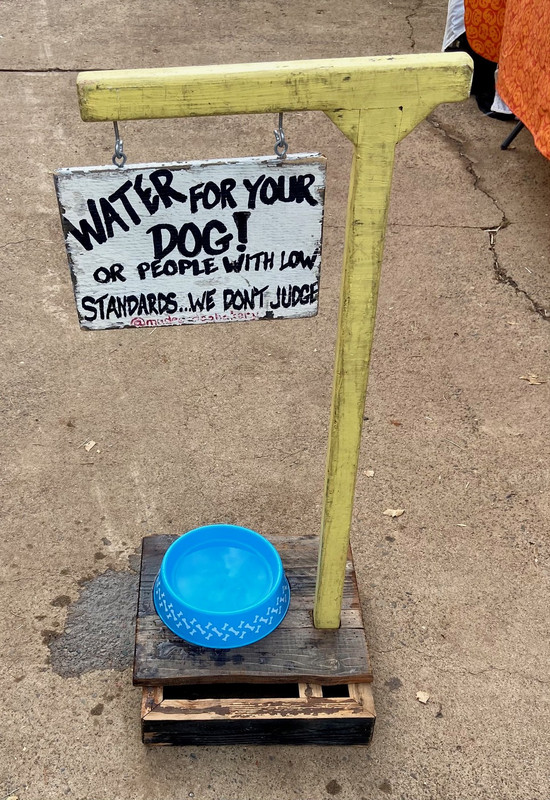 WATER FOR YOUR
DOG!
OR PEOPLE WITH LOW
STANDARDS...WE DON'T JUDGE